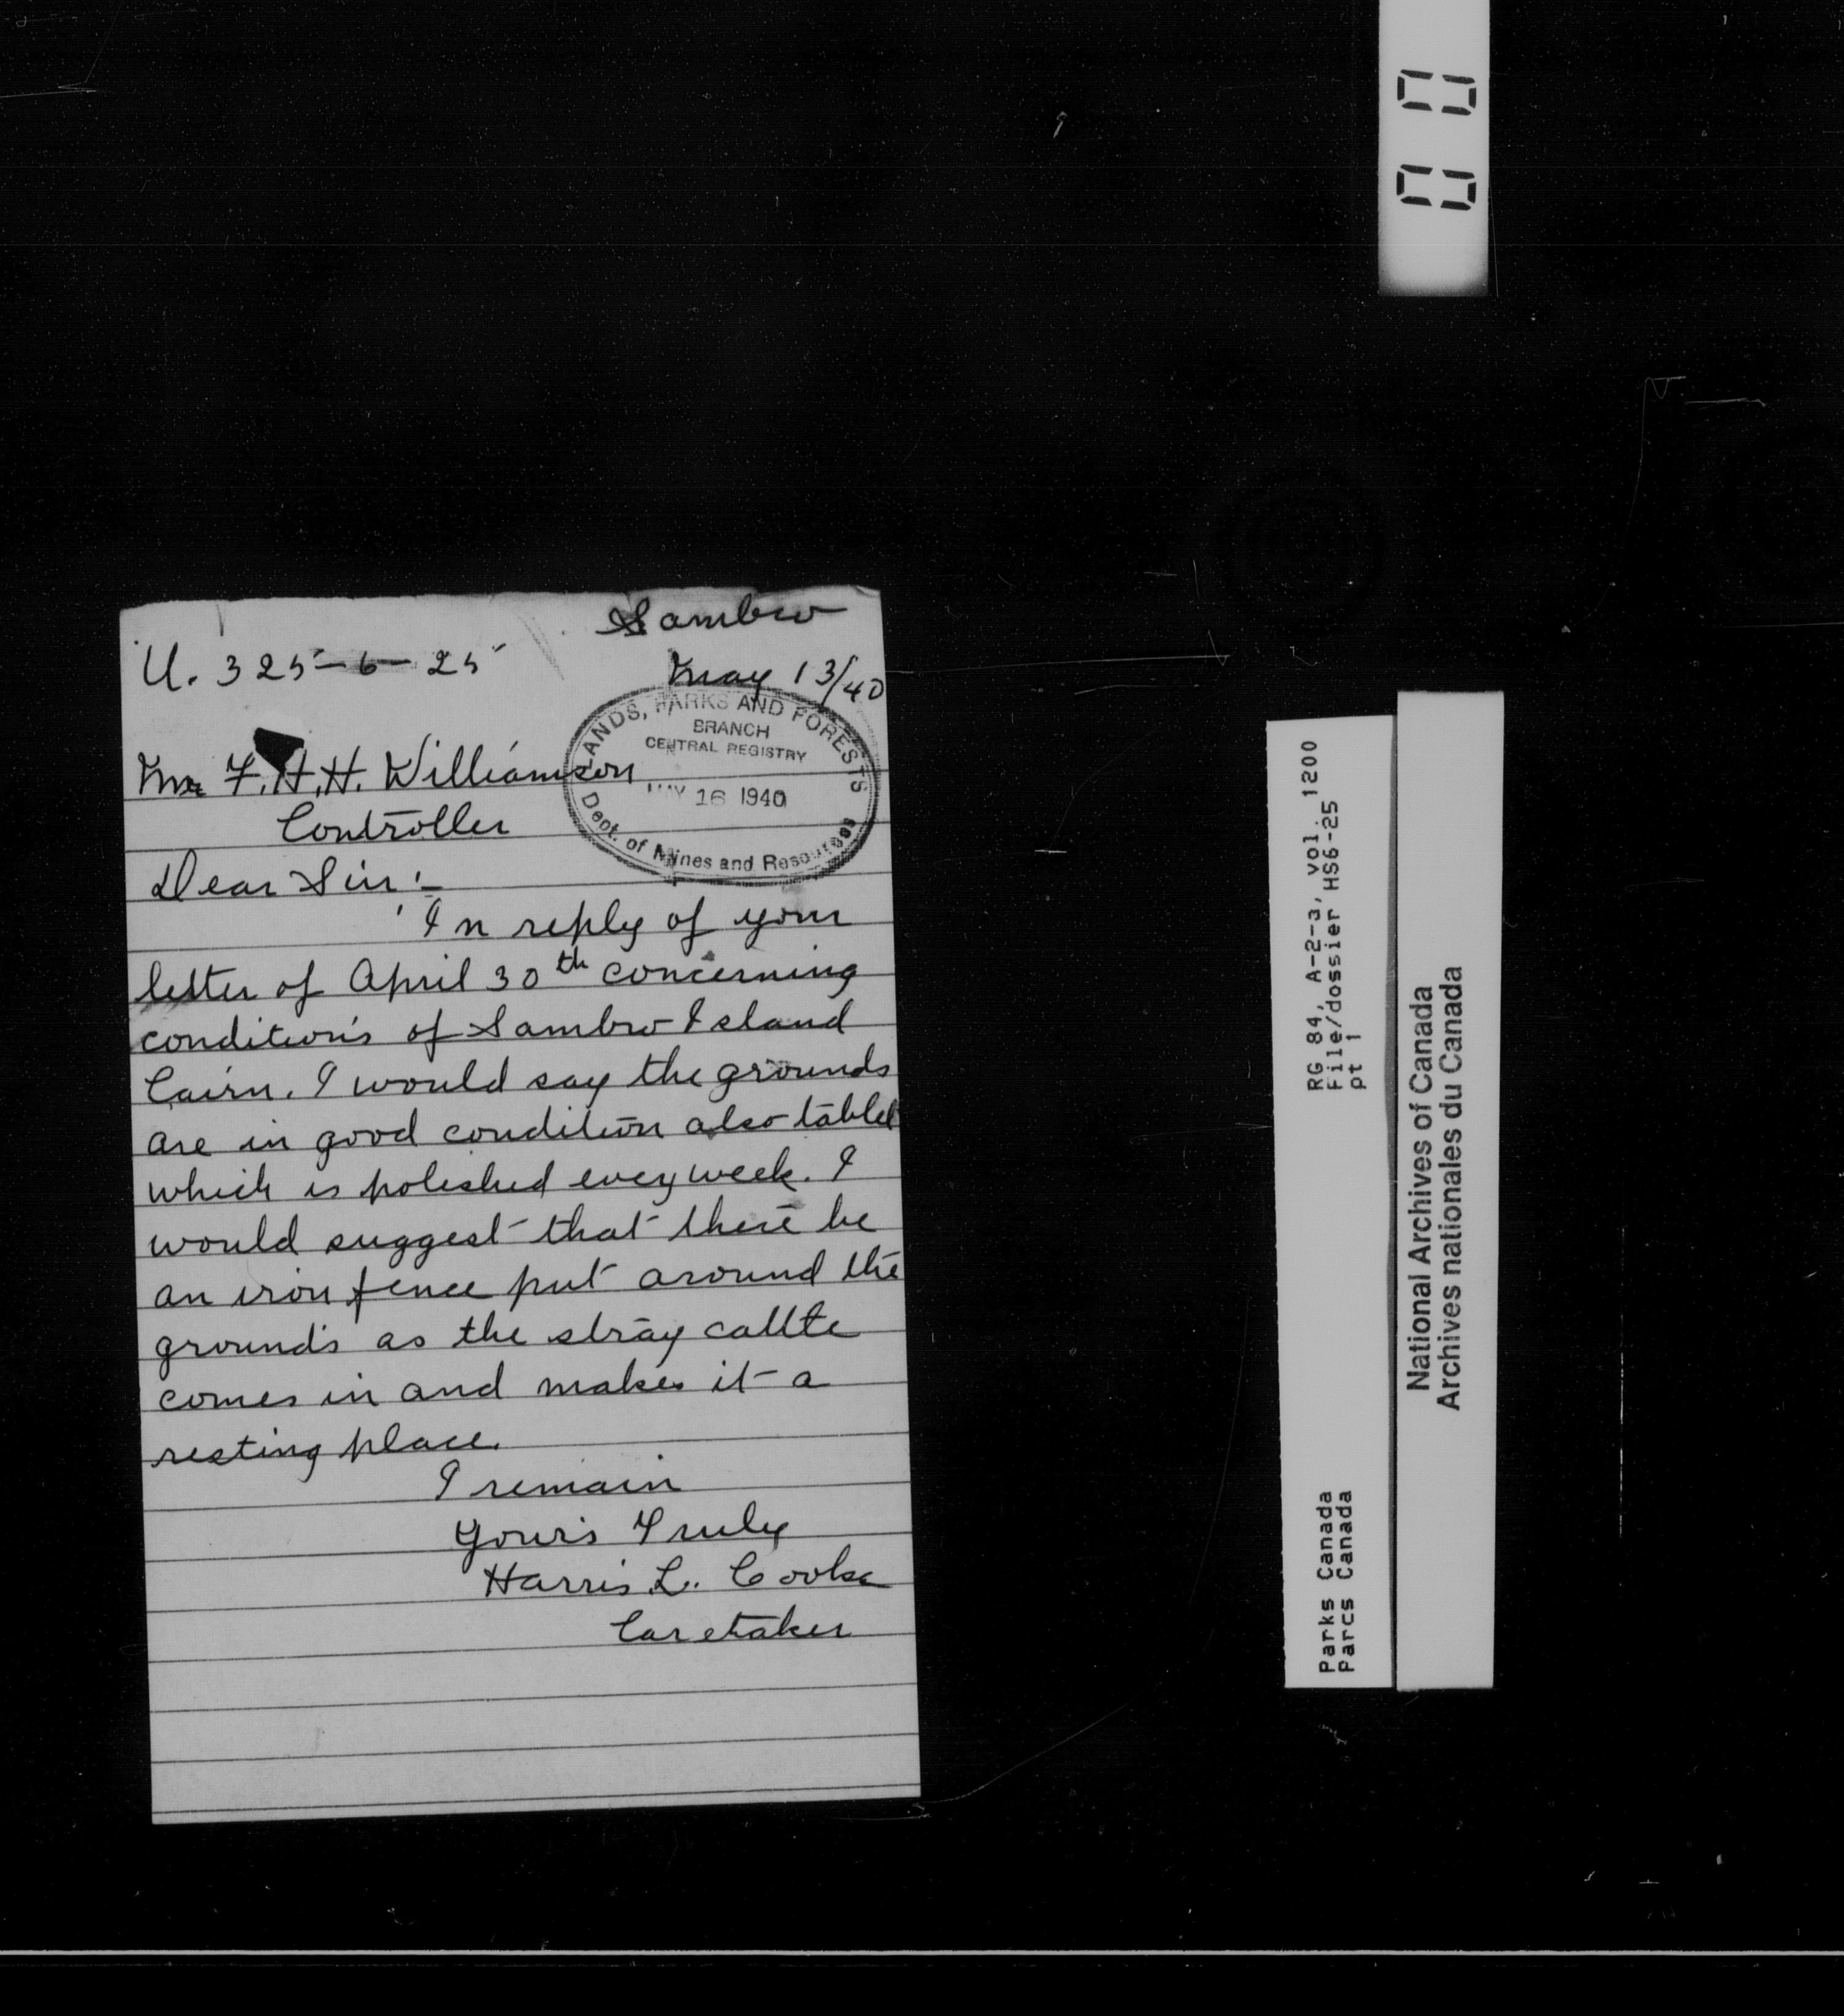 Sambro
U. 325-6-25
May 13/40
LANDS, PARKS AND FORESTS
BRANCH
CENTRAL REGISTRY
MAY 16 1940
Dept. of Mines and Resources
Mr F.H.H. Williamson
Controller
Dear Sir:-
In reply of your
letter of April 30th concerning
condition's of Sambro Island
Cairn. I would say the grounds
are in good condition also tablet
which is polished evey week. I
would suggest that there be
an iron fence put around the
ground's as the stray cattle
comes in and makes it a
resting place.
I remain
Your's Truly
Harris L. Cooke
Caretaker
00
RG 84, A-2-3, vol. 1200
File/dossier HS6-25
pt 1
Parks Canada
Parcs Canada
National Archives of Canada
Archives nationales du Canada